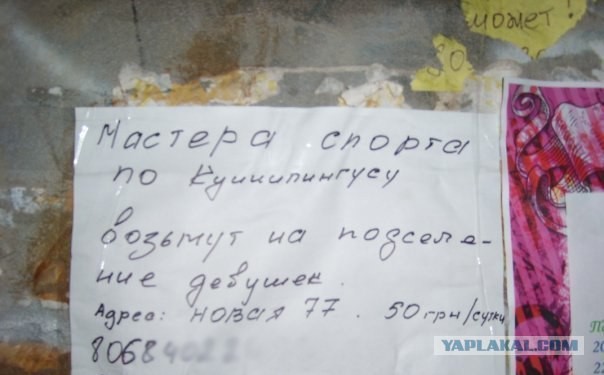 может!
Мастера спорта
по Куннилингусу
возьмут на подселе-
ние девушек.
Адрес: новая 77. 50грн/сутки
8068
YAPLAKAL.COM